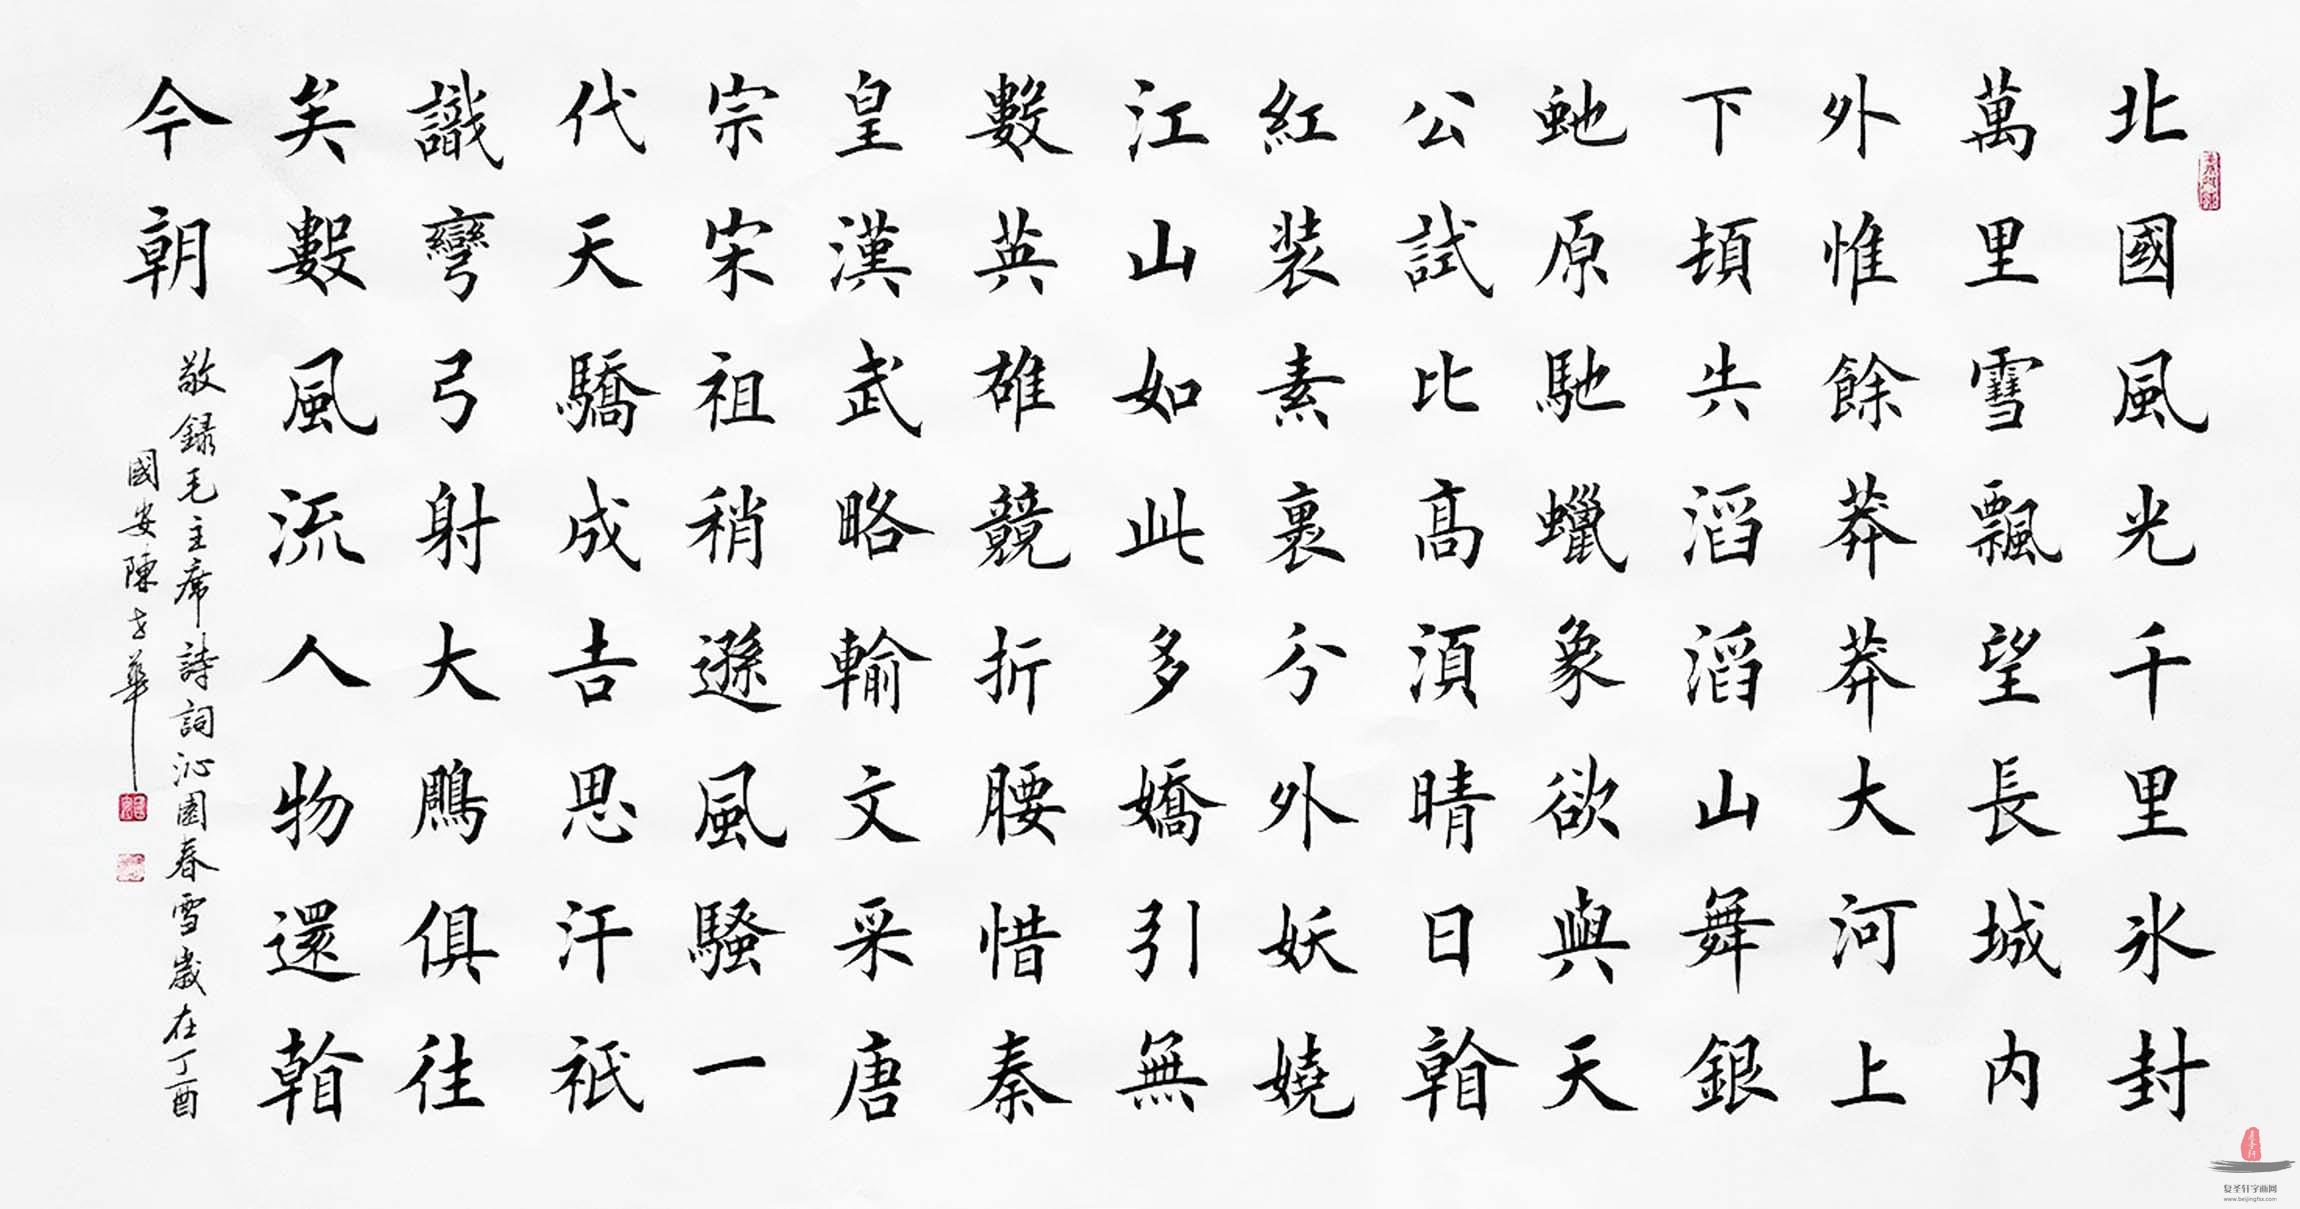 北國風光千里氷封
萬里雪飄望長城内
外惟餘莽莽大河上
下頓失滔滔山舞銀
虵原馳蠟象欲與天
公試比高須晴日看
紅装素裹分外妖嬈
江山如此多嬌引無
數英雄競折腰惜秦
皇漢武略輸文采唐
宗宋祖稍遜風騷一
代天驕成吉思汗祇
識彎弓射大鵰俱往
矣數風流人物還看
今朝
敬録毛主席詩詞沁園春雪歲在丁酉
國安陳華
复圣轩字画网
www.beijingfsx.com